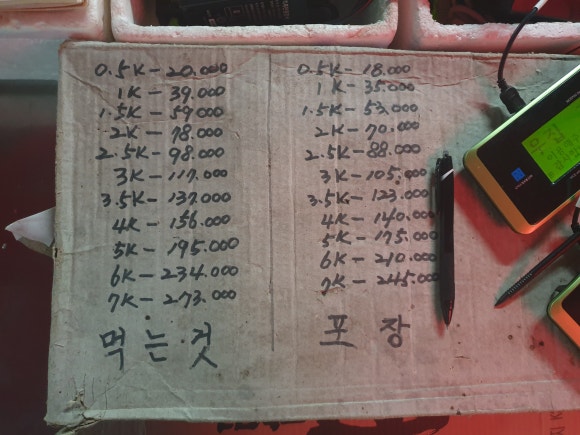 0.5K - 20.000
1K - 39.000
1.5K - 59.000
2K - 78.000
2.5K - 98.000
3K - 117.000
3.5K - 137.000
4K - 156.000
5K - 195.000
6K - 234.000
7K - 273.000
먹는것
0.5K - 18.000
1K - 35.000
1.5K - 53.000
2K - 70.000
2.5K - 88.000
3K - 105.000
3.5K - 123.000
4K - 140.000
5K - 175.000
6K - 210.000
7K - 245.000
포장